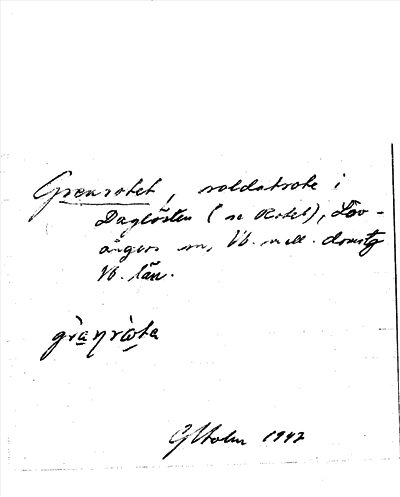 Grenrotet, soldatrote i
Daglösten (se Rotel), Löv-
ångers sn, Vb. mell. domsg
Vb. län.
grạŋrωta
G Holm 1947